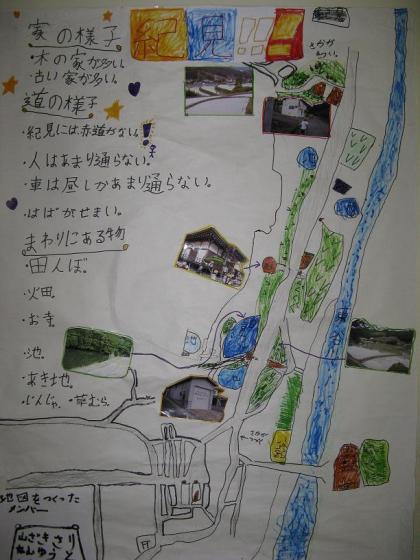 紀見
家の様子
・木の家が多い。
・古い家が多い。
道の様子
・紀見には赤道がない!
・人はあまり通らない。
・車は昼しかあまり通らない。
・はばがせまい。
まわりにある物
・田んぼ。
・火田。
・お寺。
・池。
・あき地。
・じんじゃ。・草むら。
地図をつくった
メンバー
さかが
池